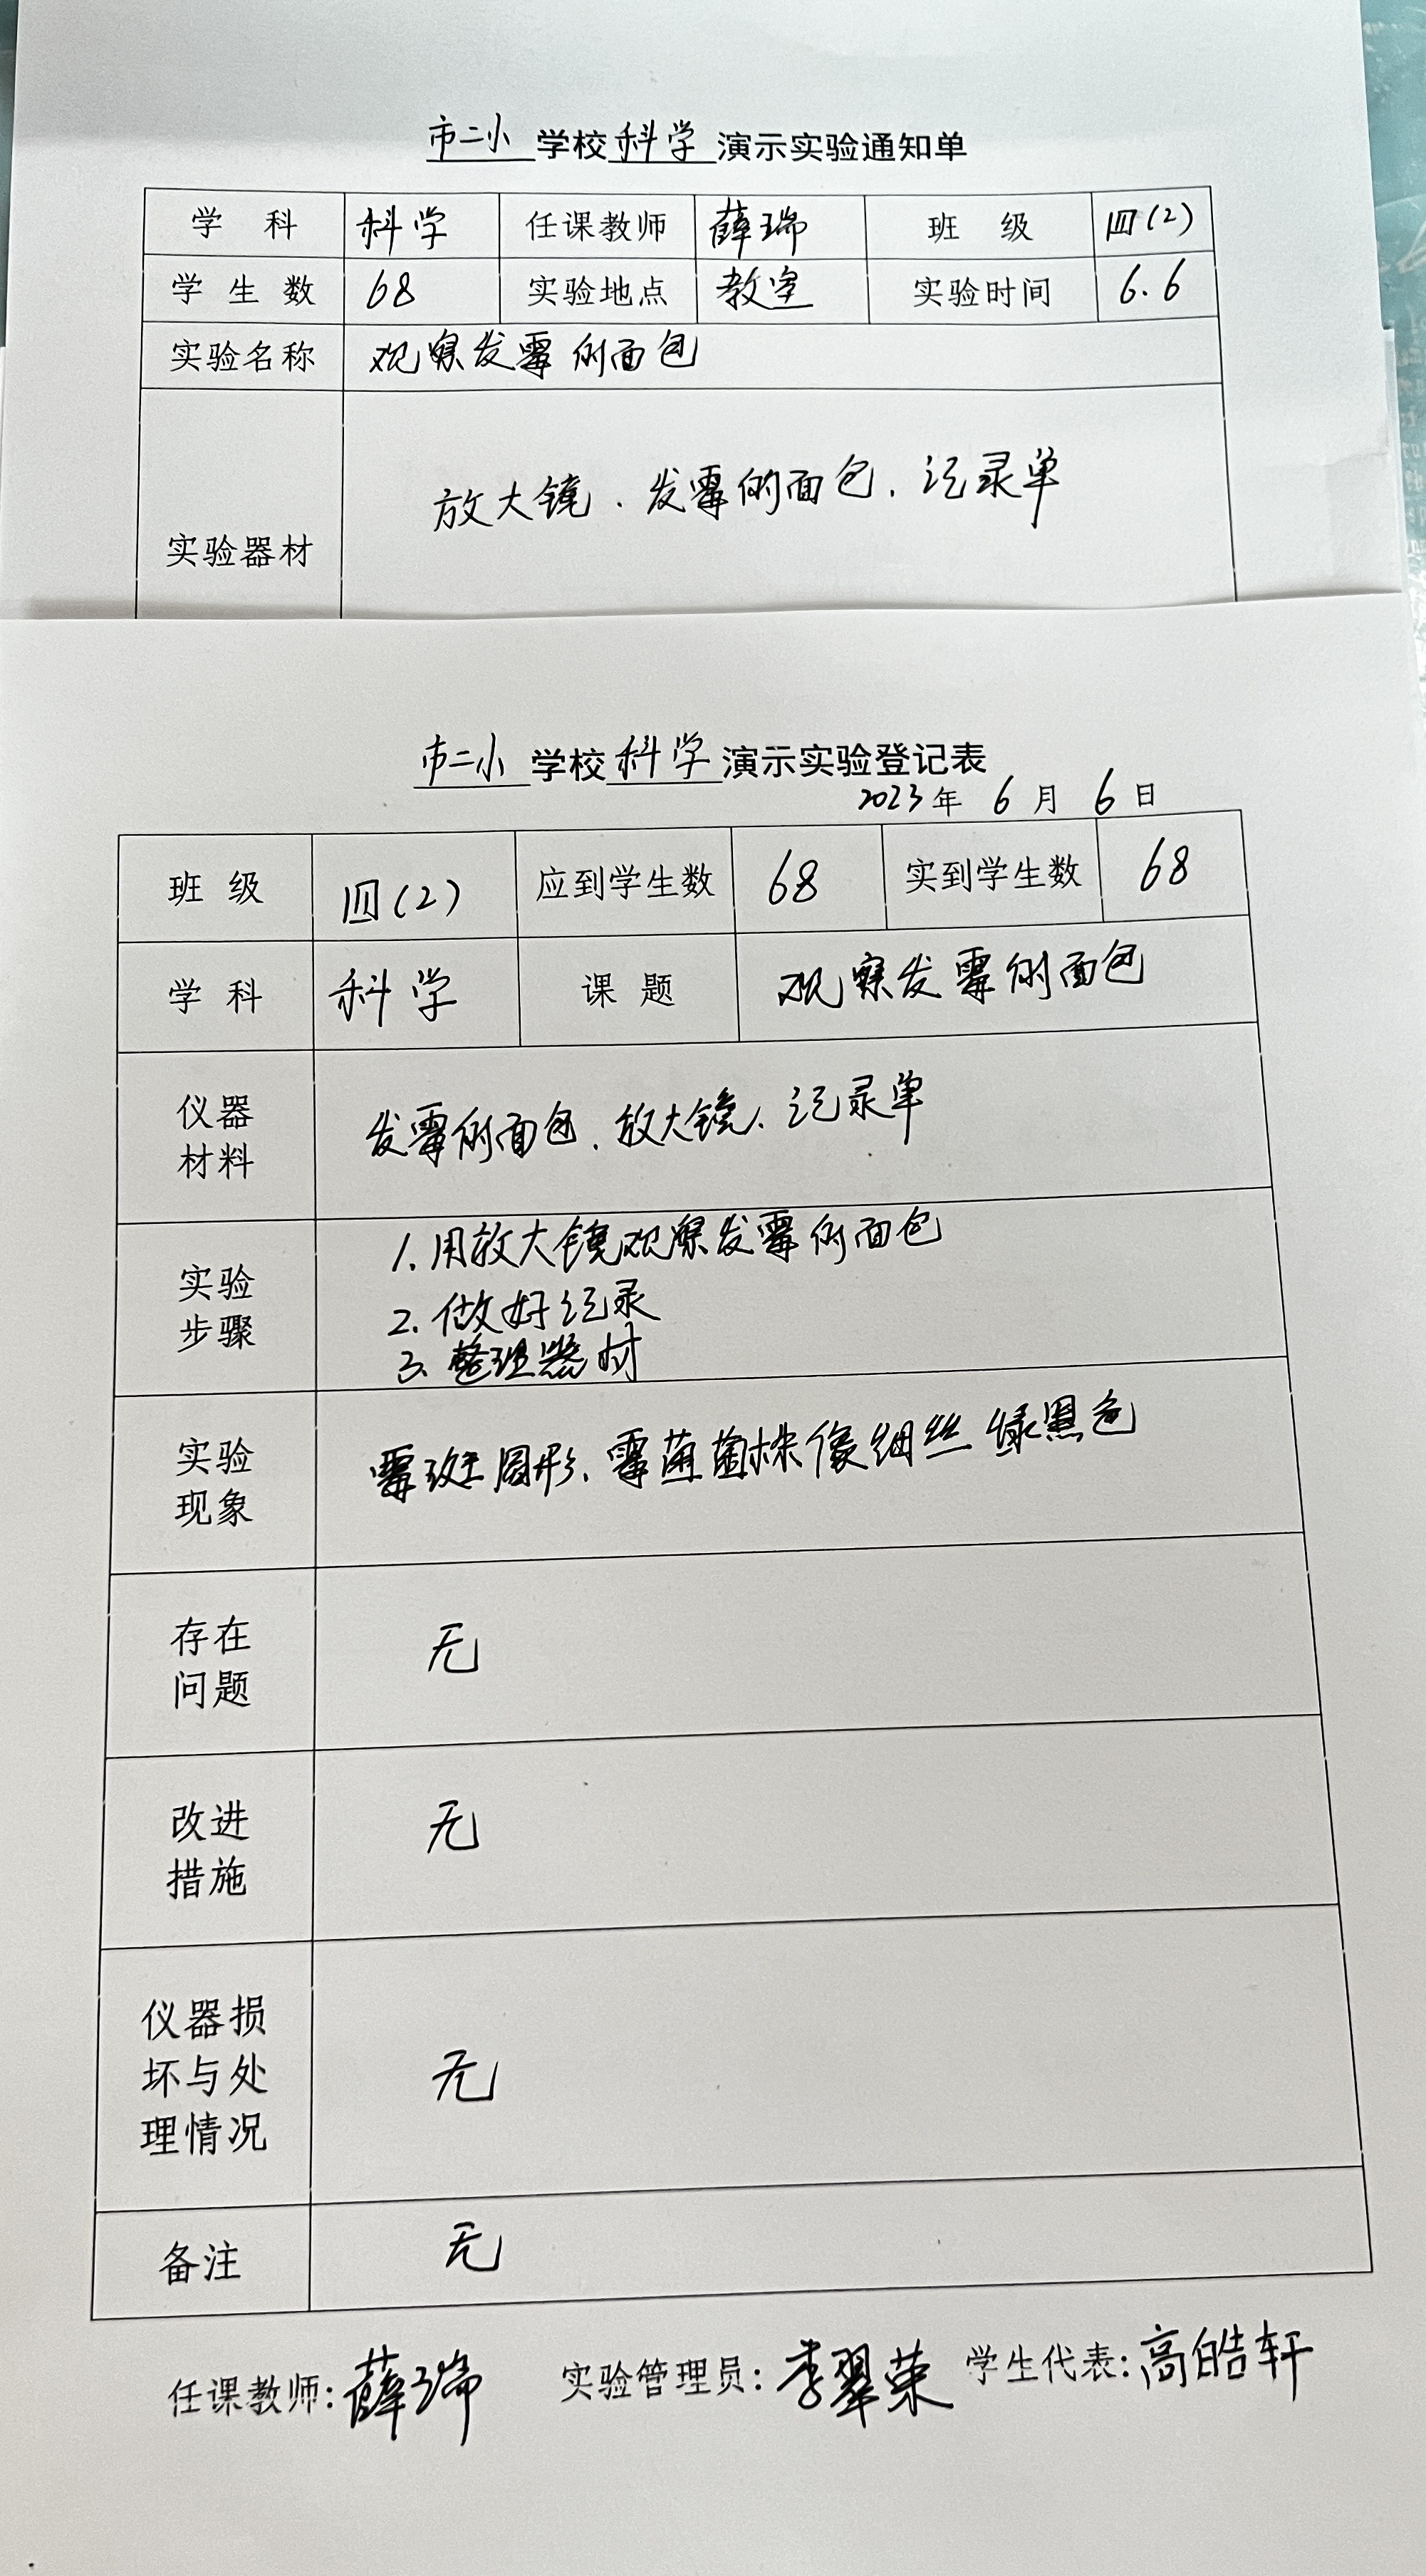 市二小学校科学演示实验通知单
学 科 科学 任课教师 薛瑞 班 级 四(2)
学 生 数 68 实验地点 教室 实验时间 6.6
实验名称 观察发霉的面包
实验器材 放大镜、发霉的面包、记录单
市二小学校科学演示实验登记表
2023年 6月 6日
班 级 四(2) 应到学生数 68 实到学生数 68
学 科 科学 课 题 观察发霉的面包
仪器
材料
发霉的面包、放大镜、记录单
实验
步骤
1.用放大镜观察发霉的面包
2.做好记录
3.整理器材
实验
现象
霉斑圆形、霉菌菌株像细丝绿黑色
存在
问题
无
改进
措施
无
仪器损
坏与处
理情况
无
备注 无
任课教师:薛瑞 实验管理员:李翠荣 学生代表:高皓轩